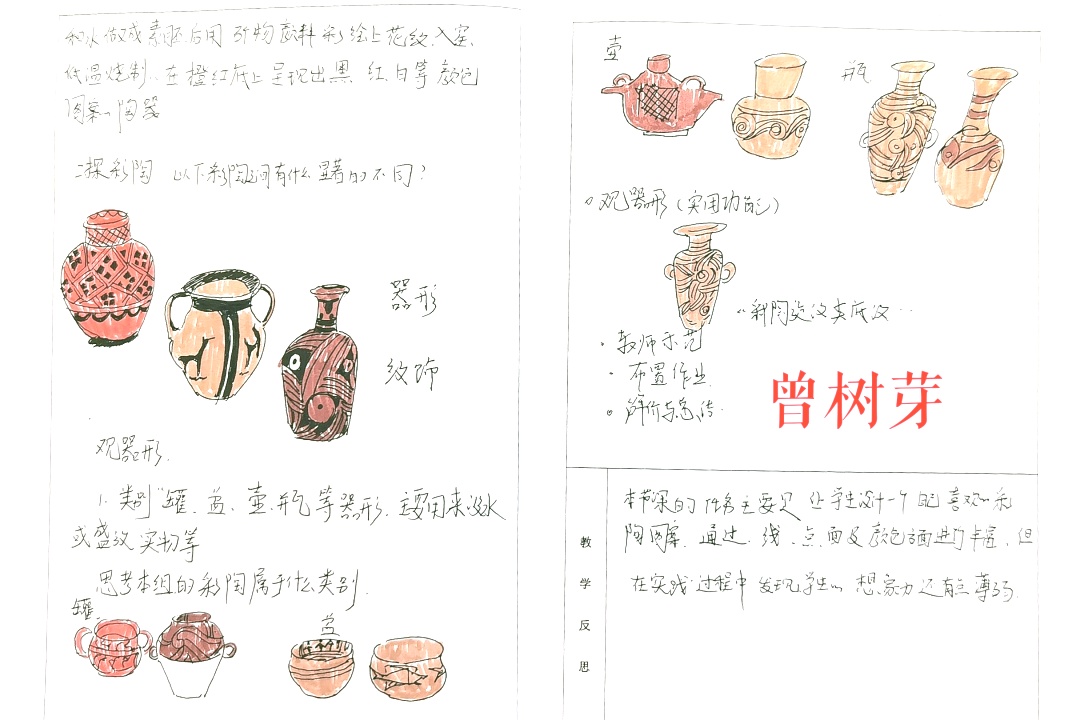 和水做成素胚后用矿物颜料彩绘上花纹、入窑、
低温烧制、在橙红底上呈现出黑、红、白等颜色
图案的陶器
二探彩陶 以下彩陶之间有什么显著的不同？
器形
纹饰
观器形.
1. 类别"罐、盆、壶、瓶等器形、主要用来汲水
或盛放实物等
思考本组的彩陶属于什么类别.
罐.
盆
壶
瓶
观器形（实用功能）
彩陶
教师示范
布置作业
评价与
曾树芽
教学反思
本节课的任务主要是让学生设计一个自己喜欢的彩
陶图案. 通过、线、点、面及颜色方面进行丰富, 但
在实践过程中发现学生的想象力还有点薄弱.